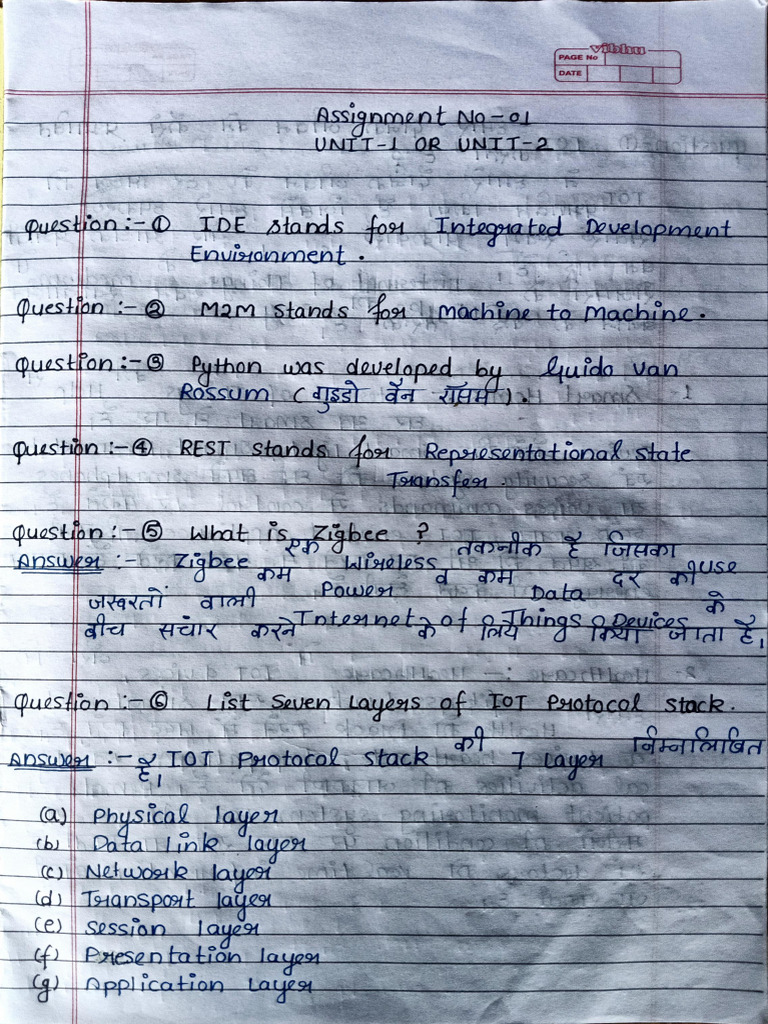 vibhu
PAGE No
DATE
Assignment No-01
UNIT-1 OR UNIT-2
Question:- ① IDE stands for Integrated Development
Environment.
Question :- ② M2M stands for machine to Machine.
Question :- ③ Python was developed by Guido van
Rossum (गुइडो वैन रॉसम).
Question :- ④ REST stands for Representational state
Transfer.
Question :- ⑤ What is Zigbee ?
Answer :- Zigbee एक Wireless तकनीक है जिसका use
कम Power व कम Data दर की
जरूरतों वाली Internet of Things Devices के
बीच संचार करने के लिये किया जाता है।
Question :- ⑥ List Seven Layers of IOT Protocol stack.
Answer :- IOT Protocol stack की 7 Layer निम्नलिखित
है।
(a) Physical layer
(b) Data link layer
(c) Network layer
(d) Transport layer
(e) Session layer
(f) Presentation layer
(g) Application Layer